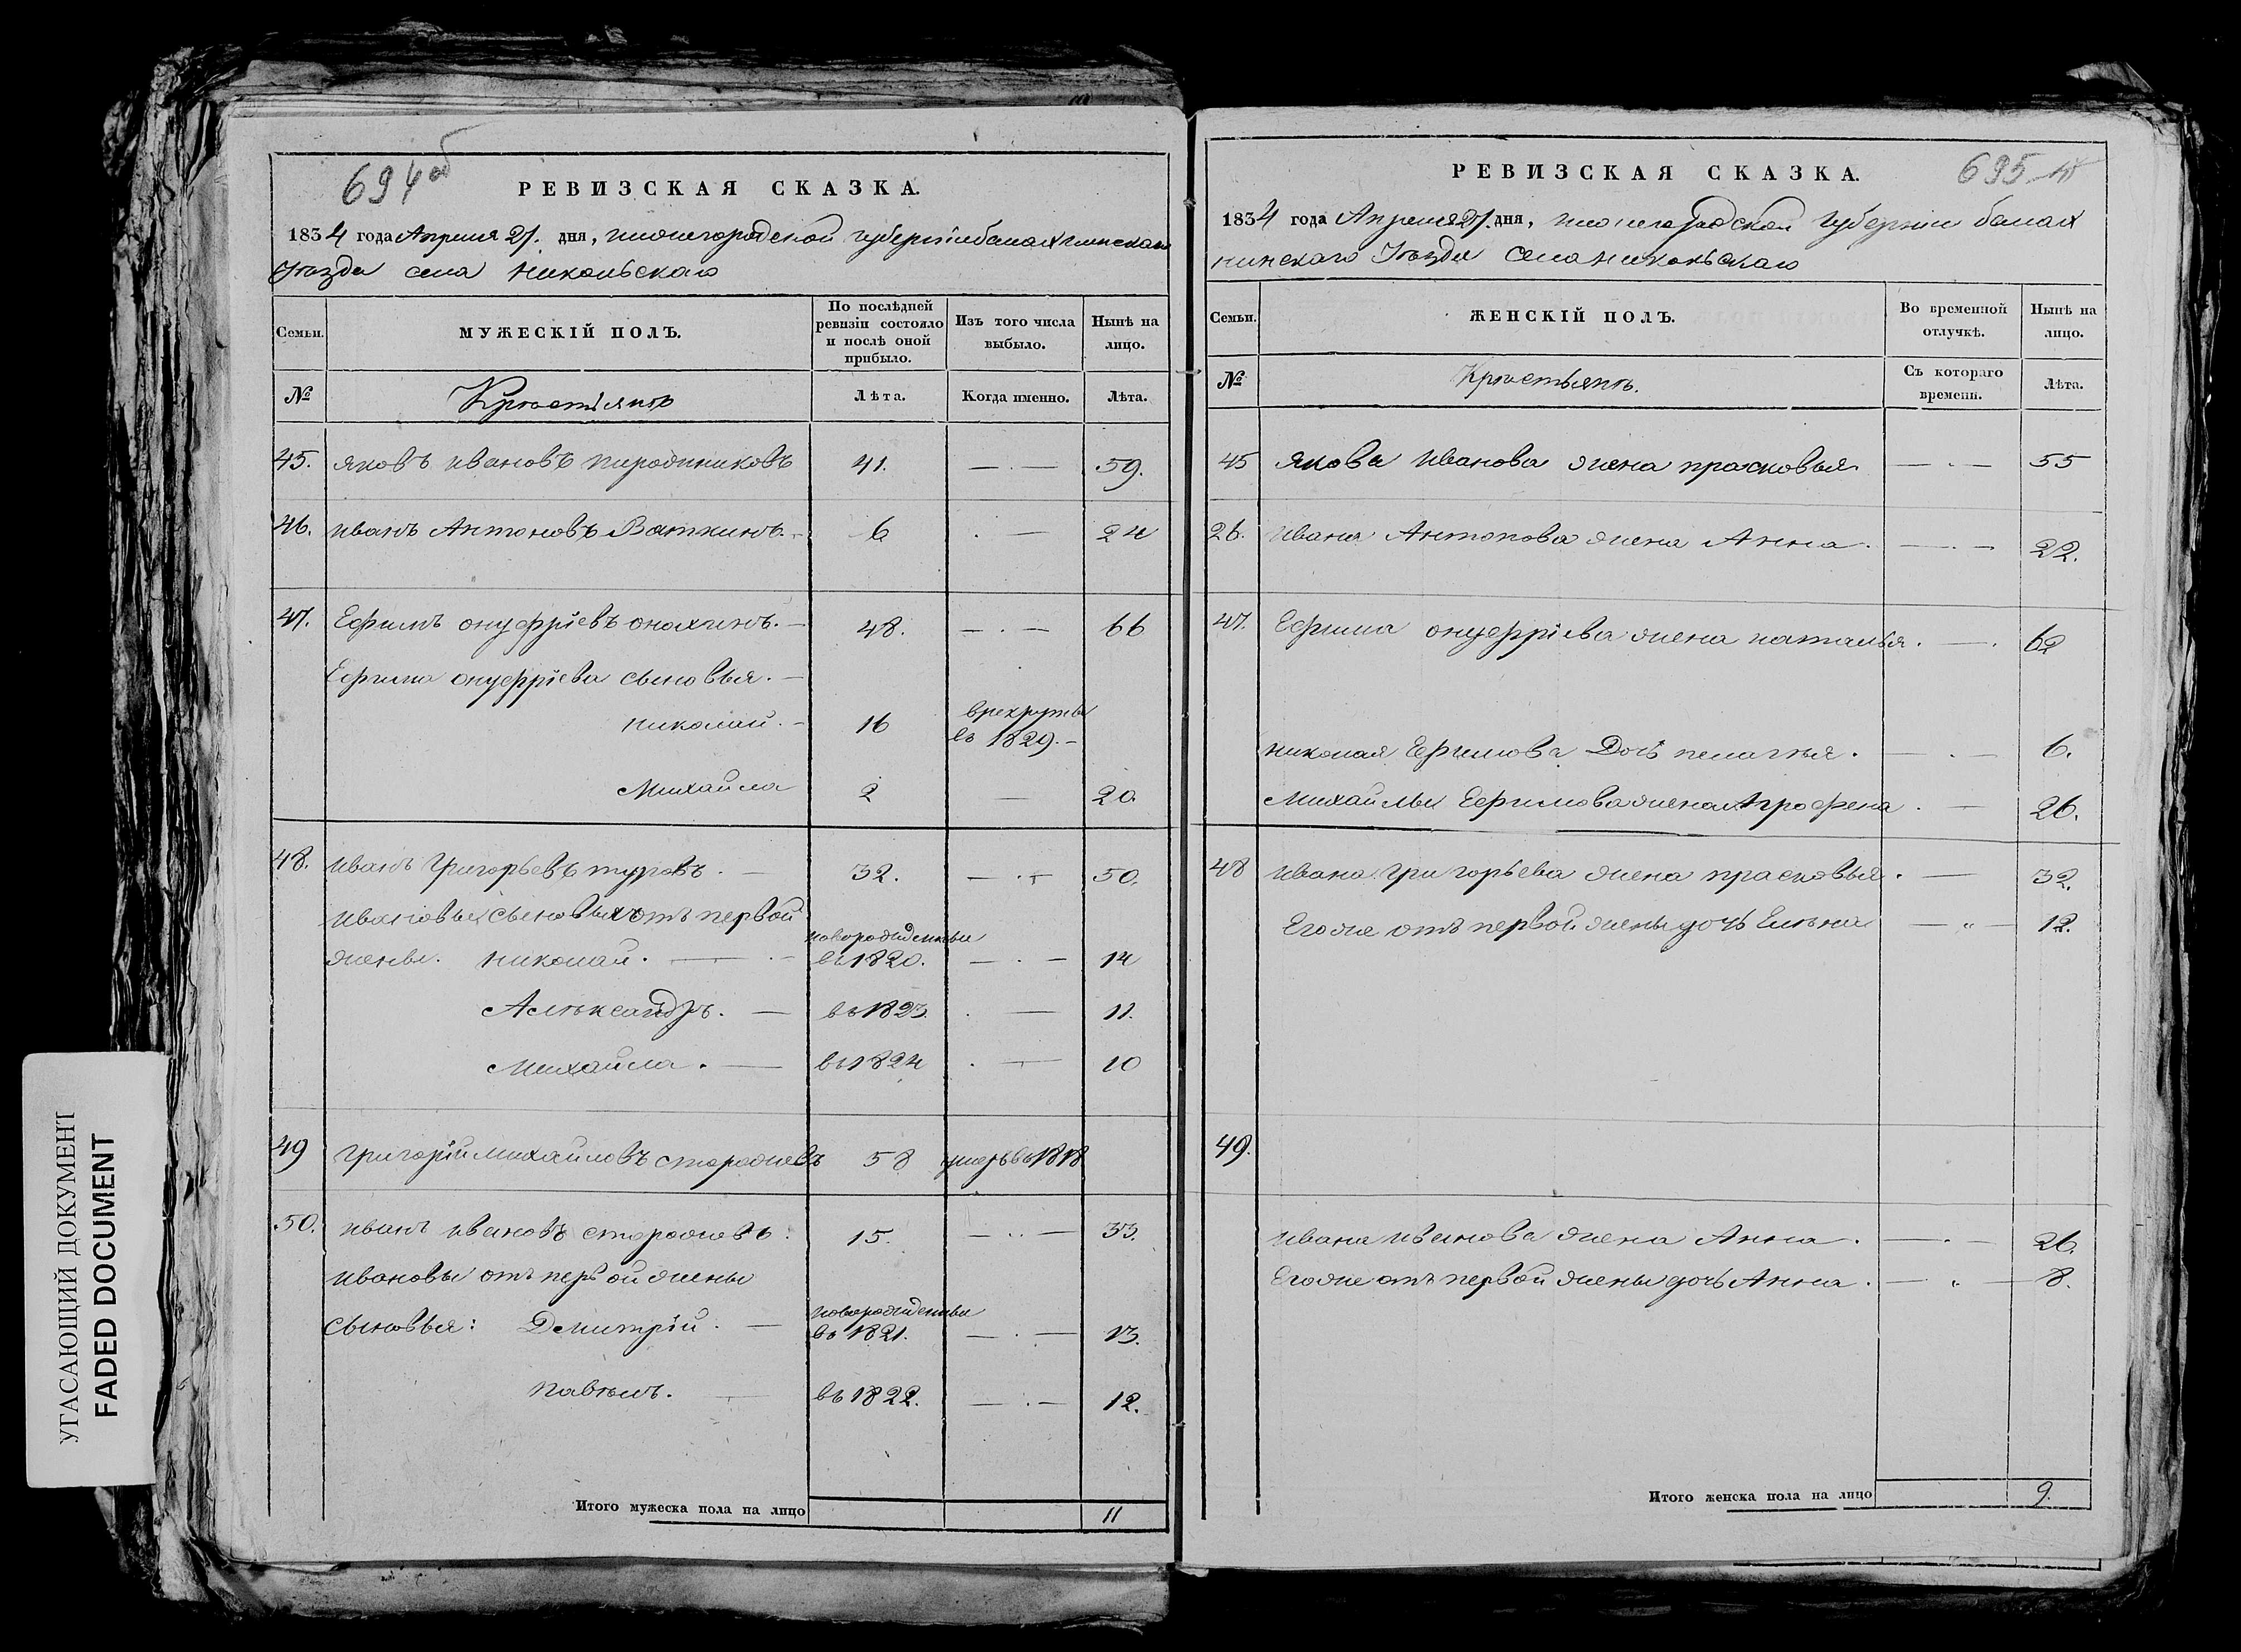 694 об
РЕВИЗСКАЯ СКАЗКА.
1834 года Апреля 27. дня, нижегородской губерніи балахнинскаго
Уѣзда села никольскаго
Семьи.
МУЖЕСКІЙ ПОЛЪ.
По послѣдней ревизіи состояло и послѣ оной прибыло.
Изъ того числа выбыло.
Нынѣ на лицо.
№
Крѣстіянъ
Лѣта.
Когда именно.
Лѣта.
45. яковъ ивановъ 41. — . — 59.
46. иванъ Антоновъ Вяткинъ. 6 . — 24
47. Ефимъ онуфріевъ онахинъ. — 48. — . — 66
Ефима онуфріева сыновья. —
николай. — 16 врекруты въ 1829. —
Михайла 2 — 20.
48. иванъ Григорьевъ туровъ. — 32. — . — 50.
ивановы сыновья отъ первой
жены. николай. — новорожденные въ 1820. — . — 14
Алѣксандръ. — въ 1823. . — 11.
Михайла. — въ 1824 . — 10
49 григорій михайловъ сторожевъ 58 умеръ въ 1818
50. иванъ ивановъ сторожевъ. 15. — . . — 33.
ивановы отъ первой жены
сыновья: Дмитрій. — новорожденные въ 1821. — . — 13.
павѣлъ. — въ 1822. — . — 12.
Итого мужеска пола на лицо 11
695
РЕВИЗСКАЯ СКАЗКА.
1834 года Апреля 27. дня, нижегородской губерніи балах
нинскаго Уѣзда Села никольскаго
Семьи.
ЖЕНСКІЙ ПОЛЪ.
Во временной отлучкѣ.
Нынѣ на лицо.
№
Крѣстьянъ.
Съ котораго времени.
Лѣта.
45 якова иванова жена прасковья. — . — 55
26. ивана Антонова жена Анна. — . — 22.
47. Ефима онуфріева жена наталья. — . 62
николая Ефимова Дочь пелагѣя. — . — 6.
михайлы Ефимова жена Агрофена . — 26.
48 ивана григорьева жена прасковья. — 32.
Егоже отъ первой жены дочь Елѣна — " — 12.
49.
ивана иванова жена Анна. — . — 26.
Егоже отъ первой жены дочь Анна. — " — 8.
Итого женска пола на лицо 9.
УГАСАЮЩИЙ ДОКУМЕНТ
FADED DOCUMENT